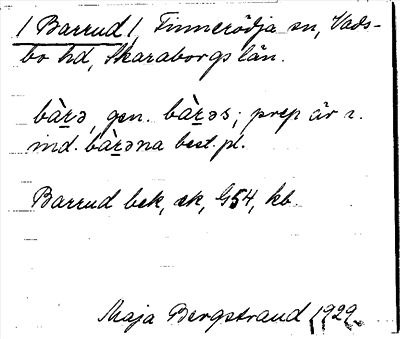 / Barrud /, Finnerödja sn, Vads-
bo hd, Skaraborgs län.
bàrə, gen. bàrəs; prep är i.
ind. bàrəna best. pl.
Barrud bek, ek, G54, kb.
Maja Bergstrand 1929.